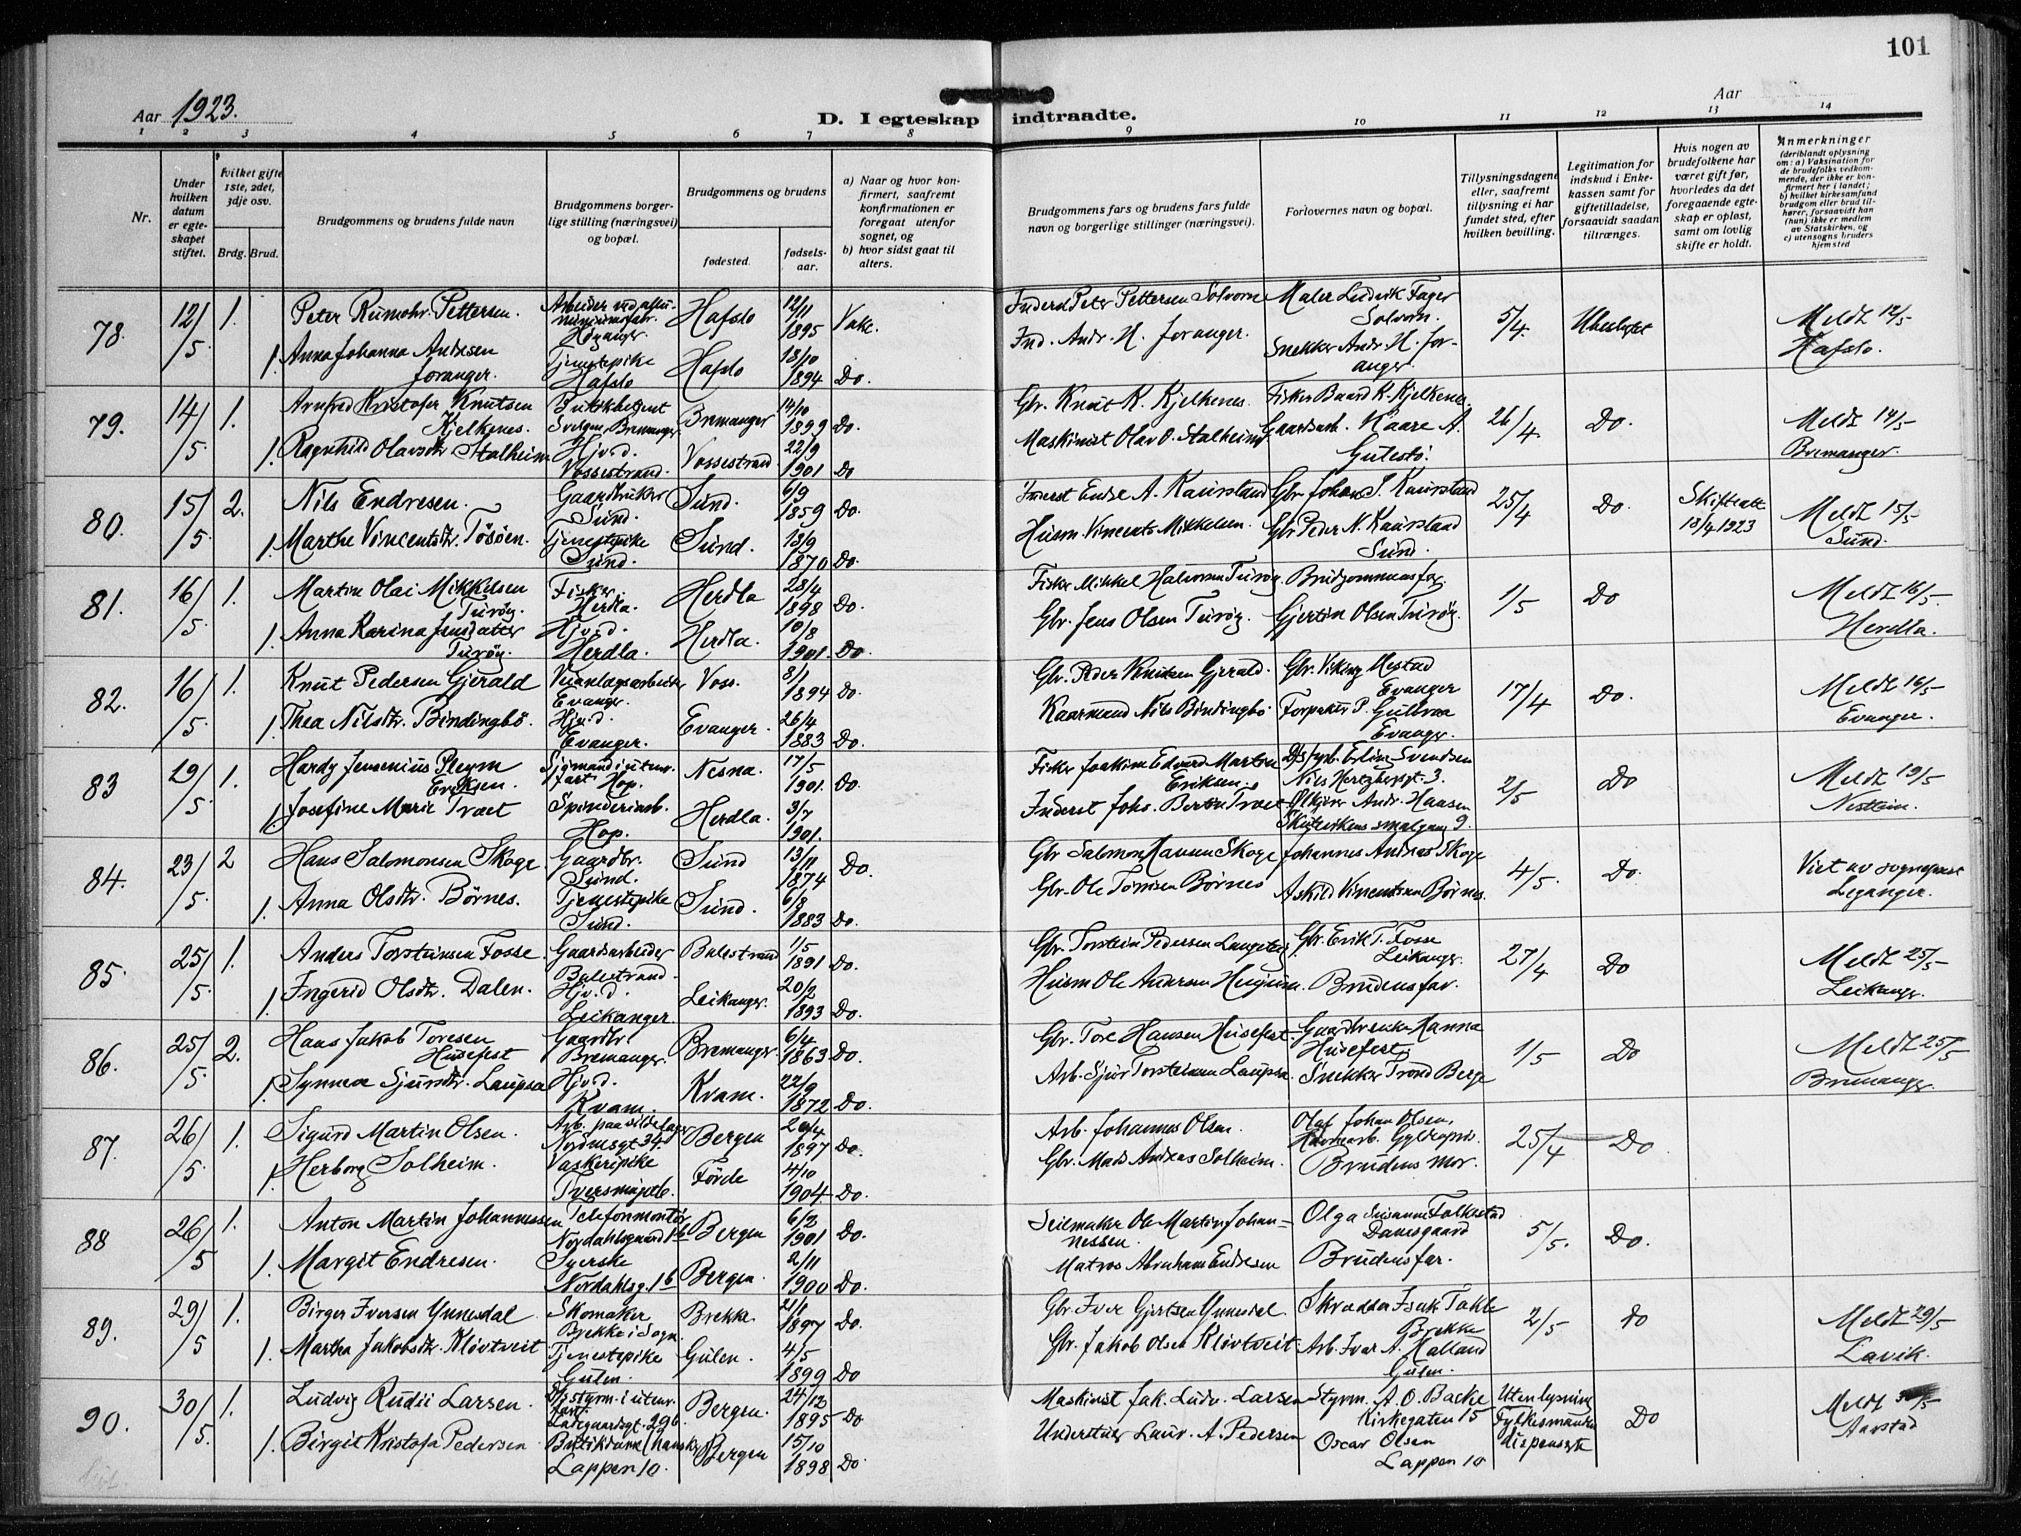 101
Aar 1923.
Aar
D. I egteskap indtraadte.
1 2 3 4 5 6 7 8 9 10 11 12 13 14
Nr.
Under hvilken datum er egteskapet stiftet.
hvilket gifte 1ste, 2det, 3dje osv.
Brdg. Brud.
Brudgommens og brudens fulde navn
Brudgommens borgerlige stilling (næringsvei) og bopæl.
Brudgommens og brudens
fødested.
fødselsaar.
a) Naar og hvor konfirmert, saafremt konfirmationen er foregaat utenfor sognet, og
b) hvor sidst gaat til alters.
Brudgommens fars og brudens fars fulde navn og borgerlige stillinger (næringsvei).
Forlovernes navn og bopæl.
Tillysningsdagene eller, saafremt tillysning ei har fundet sted, efter hvilken bevilling.
Legitimation for indskud i Enkekassen samt for giftetilladelse, forsaavidt saadan tiltrænges.
Hvis nogen av brudefolkene har været gift før, hvorledes da det foregaaende egteskap er opløst, samt om lovlig skifte er holdt.
Anmerkninger
(deriblandt oplysning om: a) Vaksination for de brudefolks vedkommende, der ikke er konfirmert her i landet; b) hvilket kirkesamfund brudgom eller brud tilhører, forsaavidt han (hun) ikke er medlem av Statskirken, og c) utensogns bruders hjemsted
78. 12/5 1. Peter Rumohr Pettersen. Arbeider ved aluminiumsfabr. Høyanger Hafslo 12/11 1895 Vake. Inderst Peter Pettersen Solvorn Maler Ludvik Fager Solvorn. 5/4. Ubeskyttet Meldt 12/5 Hafslo.
1. Anna Johanna Andrsen Joranger. Tjenestepike Hafslo Hafslo 18/10 1894 Do. Ind. Andr. H. Joranger. Snekker Andr. H. Joranger.
79. 14/5 1. Arnfred Kristofer Knutsen Kjelkenes. Butikkbetjent Svelgen, Bremanger Bremanger 14/10 1899 Do. Gbr. Knut K. Kjelkenes. Fisker Baard K. Kjelkenes. 26/4. Do. Meldt 14/5 Bremanger.
1. Ragnhild Olavsdtr. Stalheim Hjv.d. Vossestrand. Vossestrand 22/9 1901 Do Maskinist Olav O. Stalheim Gaardsarb. Kaare A. Gulestö.
80. 15/5 2. Nils Endresen. Gaardbruker Sund. Sund. 6/9 1859 Do. Inderst Endre A. Kaurstand Gbr. Johan S. Kaurstand 25/4 Do. Skifteatt. 13/4 1923 Meldt 15/5 Sund.
1. Marthe Vincentsdtr. Tösöen. Tjenestepike Sund. Sund. 18/9 1870 Do. Husm Vincents Mikkelsen. Gbr Peder N. Kaurstand Sund.
81. 16/5 1. Marton Olai Mikkelsen Turöy. Fisker, Herdla. Herdla 28/4 1898 Do. Fisker Mikkel Halvorsen Turöy. Brudgommens far. 1/5 Do Meldt 16/5. Herdla.
1. Anna Karina Jensdatter Turöy. Hjv.d. Herdla. Herdla. 10/8 1901. Do. Gbr. Jens Olsen Turöy. Gjertin Olsen Turöy.
82. 16/5 1. Knut Pedersen Gjerald Veianlægsarbeider Evanger. Voss. 8/1 1894 Do. Gbr. Peder Knutsen Gjerald. Gbr. Viking Mestad Evanger 17/4 Do. Meldt 16/5 Evanger.
1. Thea Nilsdtr. Bindingbö. Hjv.d. Evanger. Evanger. 26/4 1883 Do. Kaarmand Nils Bindingbö Forpakter P. Gullbraa Evanger.
83 19/5 1. Hardy Jensenius Pleym Eriksen. Sjömand i utenr. fart. Hop. Nesna. 17/5 1901. Do. Fisker Joakim Edvard Martin Eriksen. D/s fyrb. Erling Svendsen Nils Hertzbergsgt. 3. 2/5 Do Meldt 19/5 Nesttun.
1. Josefine Marie Træet Spinderiarb. Hop. Herdla. 3/7 1901. Inderst Johs. Bertin Træet Olkjörer Andr. Hansen Skuteviken smalgang 9.
84. 23/5 2 Hans Salomonsen Skoge Gaardbr. Sund. Sund 13/11 1874 Do. Gbr Salomon Hansen Skoge Johannes Andreas Skoge 4/5. Do. Viet av sognepræst Leganger.
1. Anna Olsdtr. Börnes. Tjenestepike Sund. Sund. 6/8 1883 Do. Gbr. Ole Tomsen Börnes Askild Vincentsen Börnes.
85. 25/5 1. Anders Torsteinsen Fosse. Gaardsarbeider Balestrand. Balestrand 1/5 1891 Do. Gbr. Torstein Pedersen Langeteig Gbr. Erik T. Fosse Leikanger. 27/4 Do Meldt 25/5 Leikanger.
1. Ingerid Olsdtr. Dalen. Hjv.d. Leikanger Leikanger. 20/2 1893 Do. Husm Ole Andersen Brudens far.
86. 25/5. 2. Hans Jakob Toresen Husefest Gaardbr Bremanger. Bremanger 6/4 1863 Do. Gbr. Tore Hansen Husefest. Gaardbrenke Hanna Husefest, 1/5 Do Meldt 25/5 Bremanger.
1. Synneva Sjursdtr. Laupsa Hjv.d. Kvam. Kvam. 22/9 1872 Do. Arb. Sjur Torsteinsen Laupsa. Snekker Trond Berge
87. 26/5 1. Sigurd Martin Olsen. Arb. paa sildelager Nordnesgt 34 Bergen 29/4 1897 Do. Arb. Johannes Olsen. Olaf Johan Olsen, Havnearb. 25/4 Do
1. Herborg Solheim. Vaskeripike Förde 4/10 1904 Do. Gbr. Mads Andreas Solheim. Brudens mor.
88 26/5 1. Anton Martin Johannessen Telefonmontör Nordahlsgaard 1b Bergen 6/3 1901 Do. Seilmaker Ole Martin Johannessen. Olga Susanne Falkestad Damsgaard 5/5. Do.
1. Margit Endresen. Syerske Nordahlsg. 1b Bergen. 2/11 1900 Do. Matros Abraham Endresen Brudens far.
89. 29/5 1. Birger Iversen Ynnesdal Skomaker Brekke i Sogn. Brekke 21/1 1897 Do. Gbr Iver Gjertsen Ynnesdal Skrædder Isak Takle Brekke 2/5 Do Meldt 29/5 Lavik.
1. Martha Jakobsdtr. Klövtveit Tjenestepike Gulen. Gulen. 4/5 1899 Do Gbr. Jakob Olsen Klövtveit. Arb. Ivar A. Halland Gulen.
90. 30/5. 1. Ludvig Rudii Larsen. D/s styrm. i utenr. fart. Ladegaardsgt. 29b. Bergen. 24/12 1895 Do Maskinist Jak. Ludv. Larsen Styrm. A. O. Backe Kirkegaten 15 Uten lysning Fylkesmanden dispenserte Do Meldt 30/5 Aarstad
1. Birgit Kristofa Pedersen Butikdame (hansker) Lappen 10. Bergen 15/10 1898 Do. Understuer Laur. A. Pedersen Oscar Olsen Lappen 10